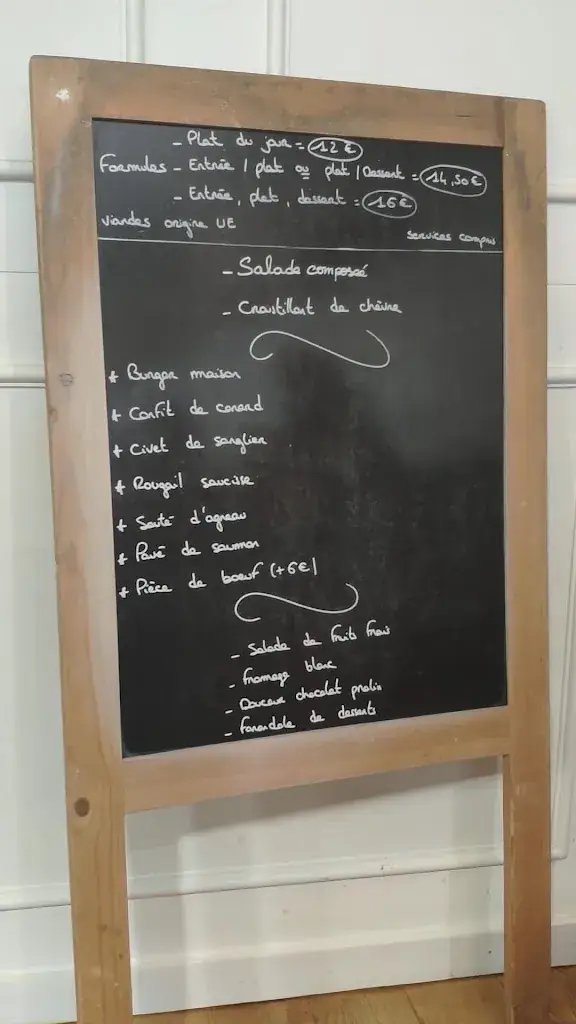 - Plat du jour = 12 €
Formules - Entrée / plat ou plat / Dessert = 14,50 €
- Entrée, plat, dessert = 16 €
viandes origine UE
services compris
- Salade composée
- Croustillant de chèvre
* Burger maison
* Confit de canard
* Civet de sanglier
* Rougail saucisse
* Sauté d'agneau
* Pavé de saumon
* Pièce de boeuf (+6€)
- Salade de fruits frais
- Fromage blanc
- Douceur chocolat pralin
- Farandole de desserts